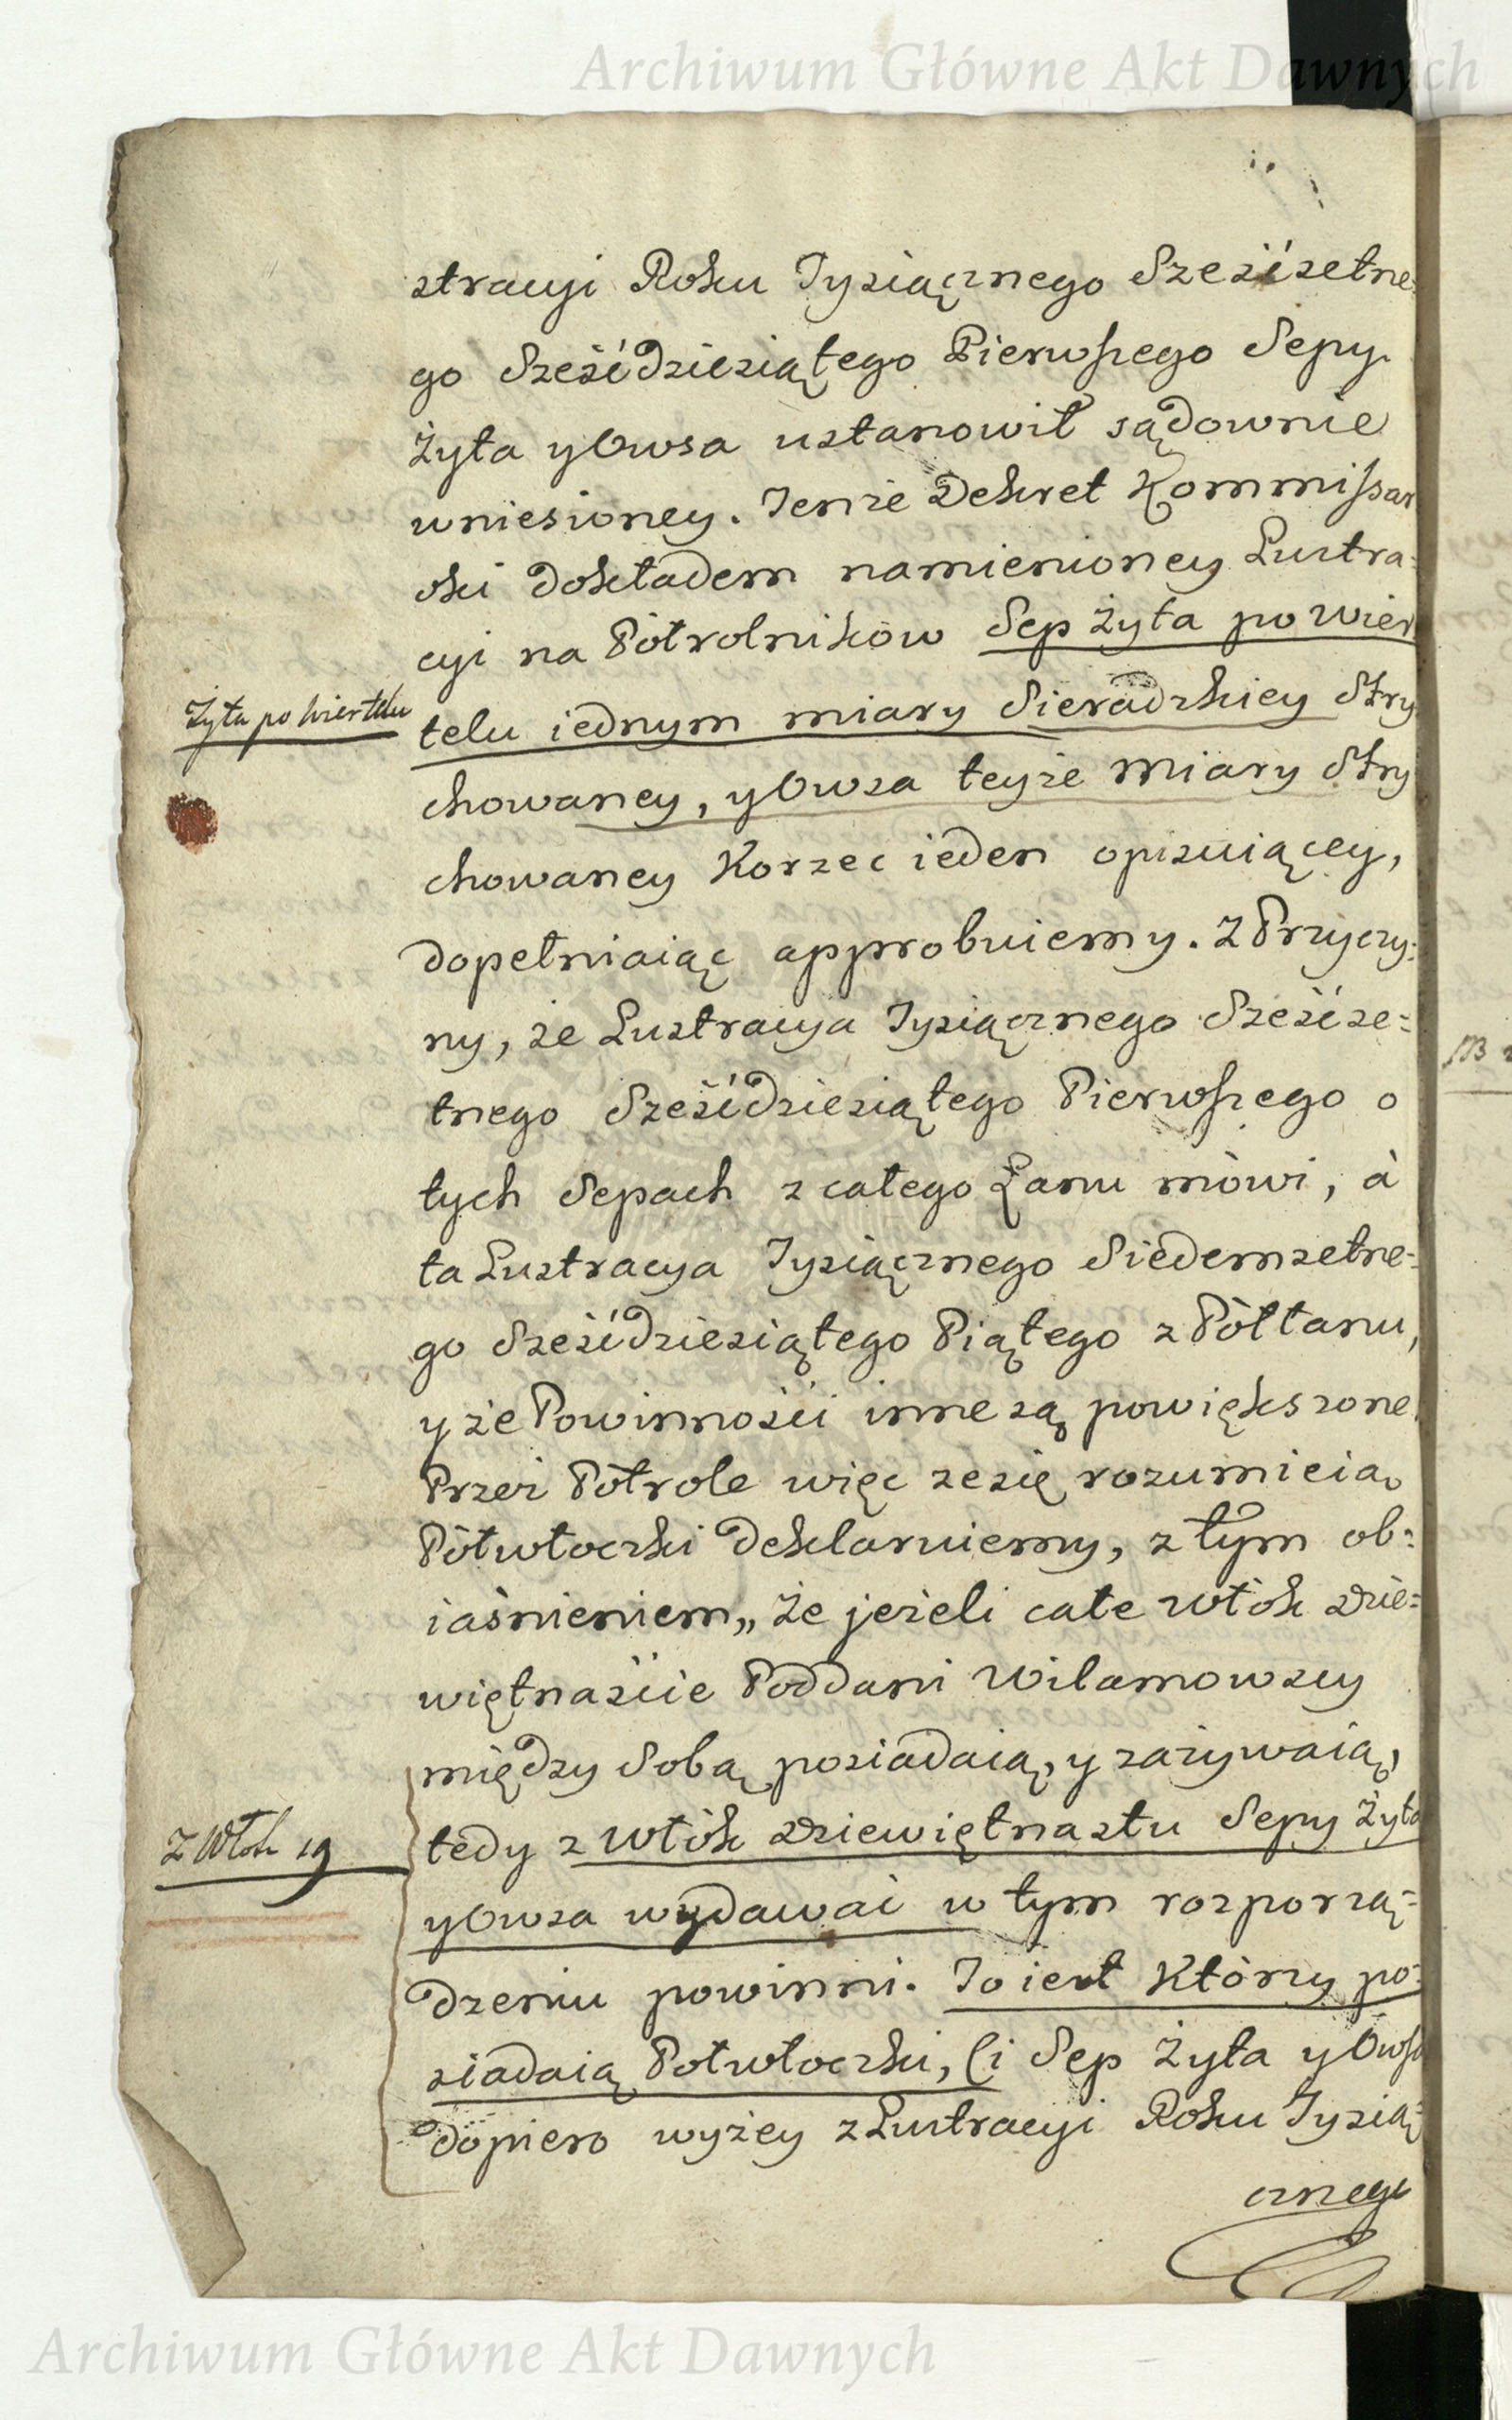 Archiwum Główne Akt Dawnych
stracyi Roku Tysiącznego Sześćsetne=
go Sześćdziesiątego Pierwszego Sepy
Żyta y Owsa ustanowił sądownie
wniesioney. Tenże Dekret Kommissar
ski dokładem namienioney Lustra=
cyi na Półrolnikow Sep żyta po wier
Żyta po Wiertelu
telu iednym miary Sieradzkiey Stry
chowaney, y Owsa teyże Miary Stry
chowaney Korzec ieden opisuiącey,
dopełniaiąc approbuiemy. Z Przyczy=
ny, że Lustracya Tysiącznego Sześćse=
tnego Sześćdziesiątego Pierwszego o
tych Sepach z całego Łanu mówi, à
ta Lustracya Tysiącznego Siedemsetne=
go Sześćdziesiątego Piątego z Półłanu,
y że Powinności inne są powiększone
Przez Półrole więc że się rozumieią
Półwłoczki deklaruiemy, z tym ob=
iaśnieniem,, że jeżeli całe Włók dzie=
więtnaście Poddani Wilamowscy
między Sobą posiadaią, y zażywaią,
Z Włók 19
tedy z Włók dziewiętnastu Sepy żyta
y Owsa wydawać w tym rozporzą=
dzeniu powinni. To iest Którzy po=
siadaią Połwłoczki, Ci Sep Żyta y Owsa
dopiero wyżey z Lustracyi Roku Tysią=
cznego
Archiwum Główne Akt Dawnych